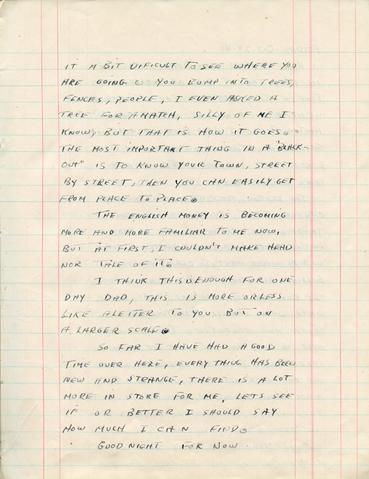 IT A BIT DIFICULT TO SEE WHERE YOU
ARE GOING & YOU BUMP INTO TREES,
FENCES, PEOPLE, I EVEN ASKED A
TREE FOR A MATCH, SILLY OF ME I
KNOW, BUT THAT IS HOW IT GOES.
THE MOST IMPORTANT THING IN A "BLACK-
OUT" IS TO KNOW YOUR TOWN, STREET
BY STREET, THEN YOU CAN EASILY GET
FROM PLACE TO PLACE.
THE ENGLISH MONEY IS BECOMING
MORE AND MORE FAMILIAR TO ME NOW,
BUT AT FIRST, I COULDN'T MAKE HEAD
NOR TALE OF IT.
I THINK THIS IS ENOUGH FOR ONE
DAY DAD, THIS IS MORE OR LESS
LIKE A LETTER TO YOU BUT ON
A LARGER SCALE.
SO FAR I HAVE HAD A GOOD
TIME OVER HERE, EVERY THING HAS BEEN
NEW AND STRANGE, THERE IS A LOT
MORE IN STORE FOR ME, LETS SEE
IF OR BETTER I SHOULD SAY
HOW MUCH I CAN FIND.
GOODNIGHT FOR NOW.